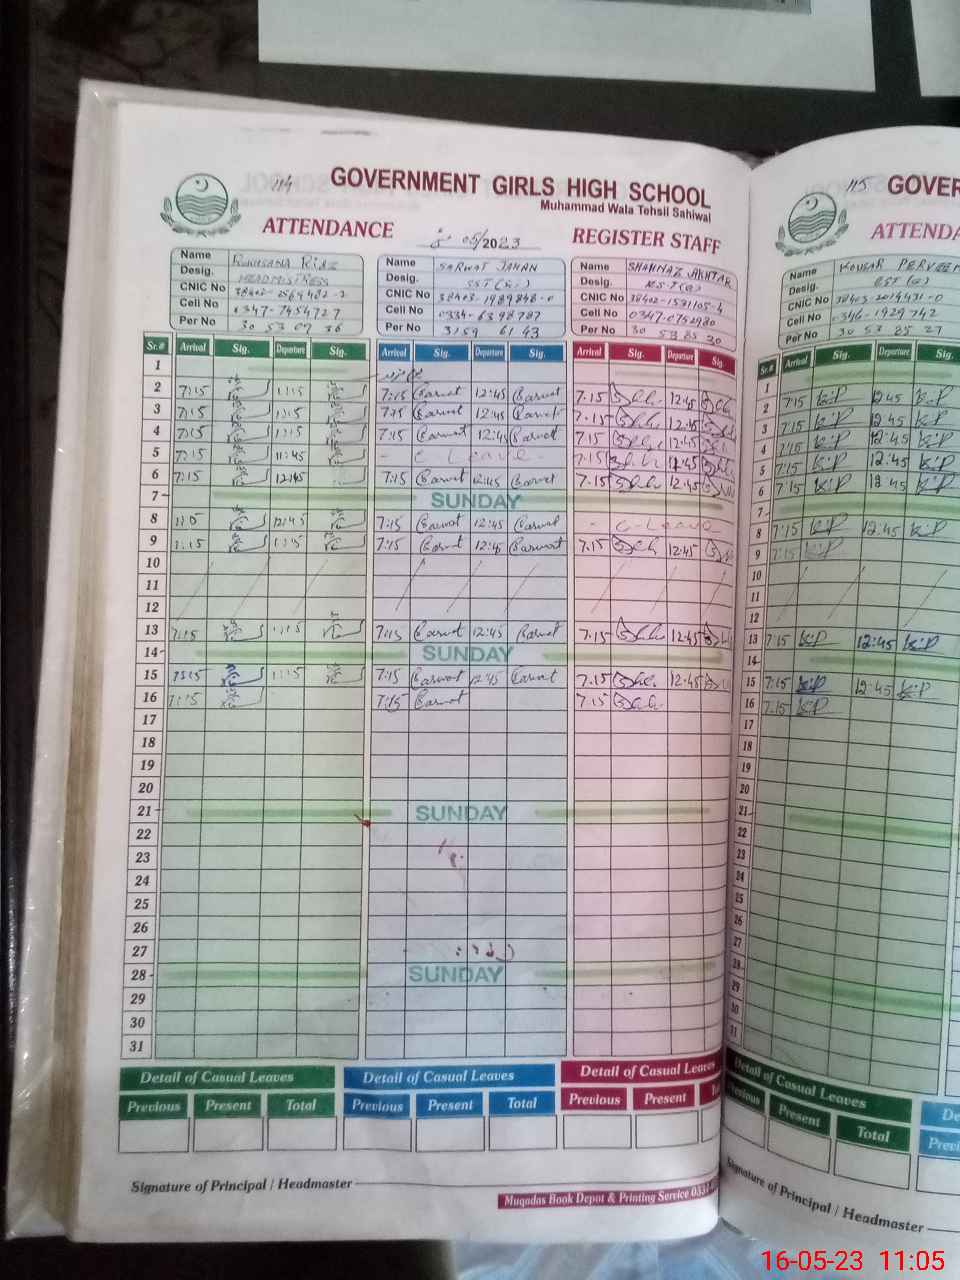 114
GOVERNMENT GIRLS HIGH SCHOOL
Muhammad Wala Tehsil Sahiwal
ATTENDANCE
05/2023
REGISTER STAFF
Name RUKHSANA RIAZ
Desig. HEADMISTRESS
CNIC No
Cell No 0347-7454727
Per No 30 53 07 36
Name SARWAT JAHAN
Desig.
CNIC No 38403-1989848-0
Cell No 0334-6398787
Per No 3159 61 43
Name SHAHNAZ AKHTAR
Desig.
CNIC No 38402-1531105-4
Cell No 0347-0752980
Per No 30 53 85 30
Sr.# Arrival Sig. Departure Sig. Arrival Sig. Departure Sig. Arrival Sig. Departure Sig.
1
2 7:15 1:15 7:15 Sarwat 12:45 Sarwat 7.15 12:45
3 7:15 1:15 7:15 Sarwat 12:45 Sarwat 7.15 12:45
4 7:15 1:15 7:15 Sarwat 12:45 Sarwat 7.15 12:45
5 7:15 11:45 - C Leave - 7.15 12:45
6 7:15 12:45 7:15 Sarwat 12:45 Sarwat 7.15 12:45
7 SUNDAY
8 12:45 7:15 Sarwat 12:45 Sarwat - C-Leave
9 1:15 7:15 Sarwat 12:45 Sarwat 7.15 12:45
10
11
12
13 7:15 1:15 7:15 Sarwat 12:45 Sarwat 7.15 12:45
14 SUNDAY
15 7:15 1:15 7:15 Sarwat 12:45 Sarwat 7.15 12:45
16 7:15 7:15 Sarwat 7.15
17
18
19
20
21 SUNDAY
22
23
24
25
26
27
28 SUNDAY
29
30
31
Detail of Casual Leaves Detail of Casual Leaves Detail of Casual Leaves
Previous Present Total Previous Present Total Previous Present
Signature of Principal / Headmaster
Muqadas Book Depot & Printing Service
115
GOVER
ATTENDA
Name KOUSAR PERVEEN
Desig. EST (G)
CNIC No 38403-2014431-0
Cell No 0346-1929742
Per No 30 53 85 27
Sr.# Arrival Sig. Departure Sig.
1
2 7:15 K.P 12:45 K.P
3 7:15 K.P 12:45 K.P
4 7:15 K.P 12:45 K.P
5 7:15 K.P 12:45 K.P
6 7:15 K.P 12:45 K.P
7
8 7:15 K.P 12:45 K.P
9 7:15 K.P
10
11
12
13 7:15 K.P 12:45 K.P
14
15 7:15 K.P 12:45 K.P
16 7:15 K.P
17
18
19
20
21
22
23
24
25
26
27
28
29
30
31
Detail of Casual Leaves
Present Total
Signature of Principal / Headmaster
16-05-23 11:05